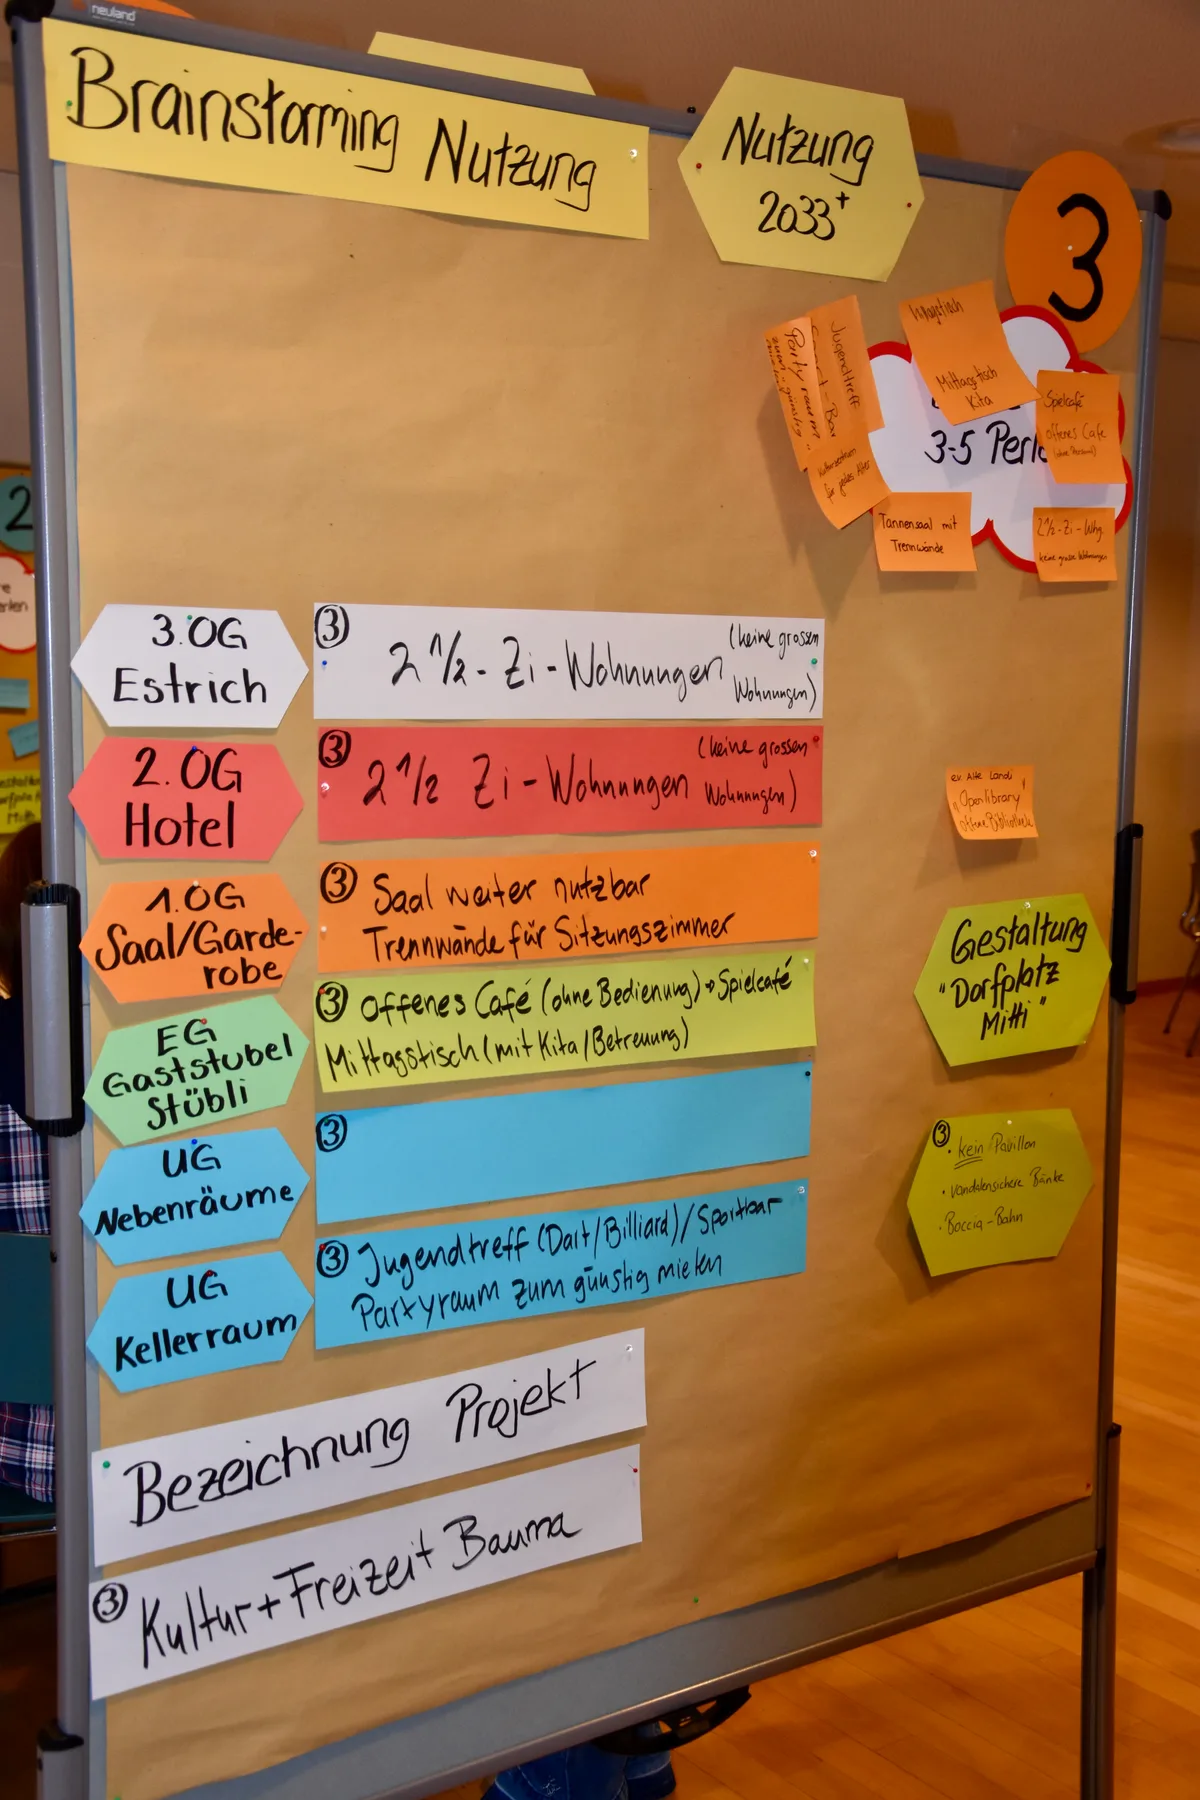 neuland
Brainstorming Nutzung
Nutzung
2033+
3
Jugendtreff
Partyraum
Kulturzentrum
für jedes Alter
Mittagstisch
Kita
3-5 Perle
Spielcafé
offenes Cafe
(ohne Personal)
Tannensaal mit
Trennwände
2½-Zi-Whg.
keine grosse Wohnungen
2
3.OG
Estrich
③
2 1/2-Zi-Wohnungen
(keine grossen
Wohnungen)
2.OG
Hotel
③
2 1/2 Zi-Wohnungen
(keine grossen
Wohnungen)
1.OG
Saal/Garde-
robe
③ Saal weiter nutzbar
Trennwände für Sitzungszimmer
EG
Gaststubel
Stübli
③ Offenes Café (ohne Bedienung) → Spielcafé
Mittagstisch (mit Kita/Betreuung)
UG
Nebenräume
③
UG
Kellerraum
③ Jugendtreff (Dart/Billiard)/Sportbar
Partyraum zum günstig mieten
ev. Alte Landi
"Openlibrary"
offene Bibliothek
Gestaltung
"Dorfplatz
Mitti"
③
• kein Pavillon
• vandalensichere Bänke
• Boccia-Bahn
Bezeichnung Projekt
③ Kultur+Freizeit Bauma